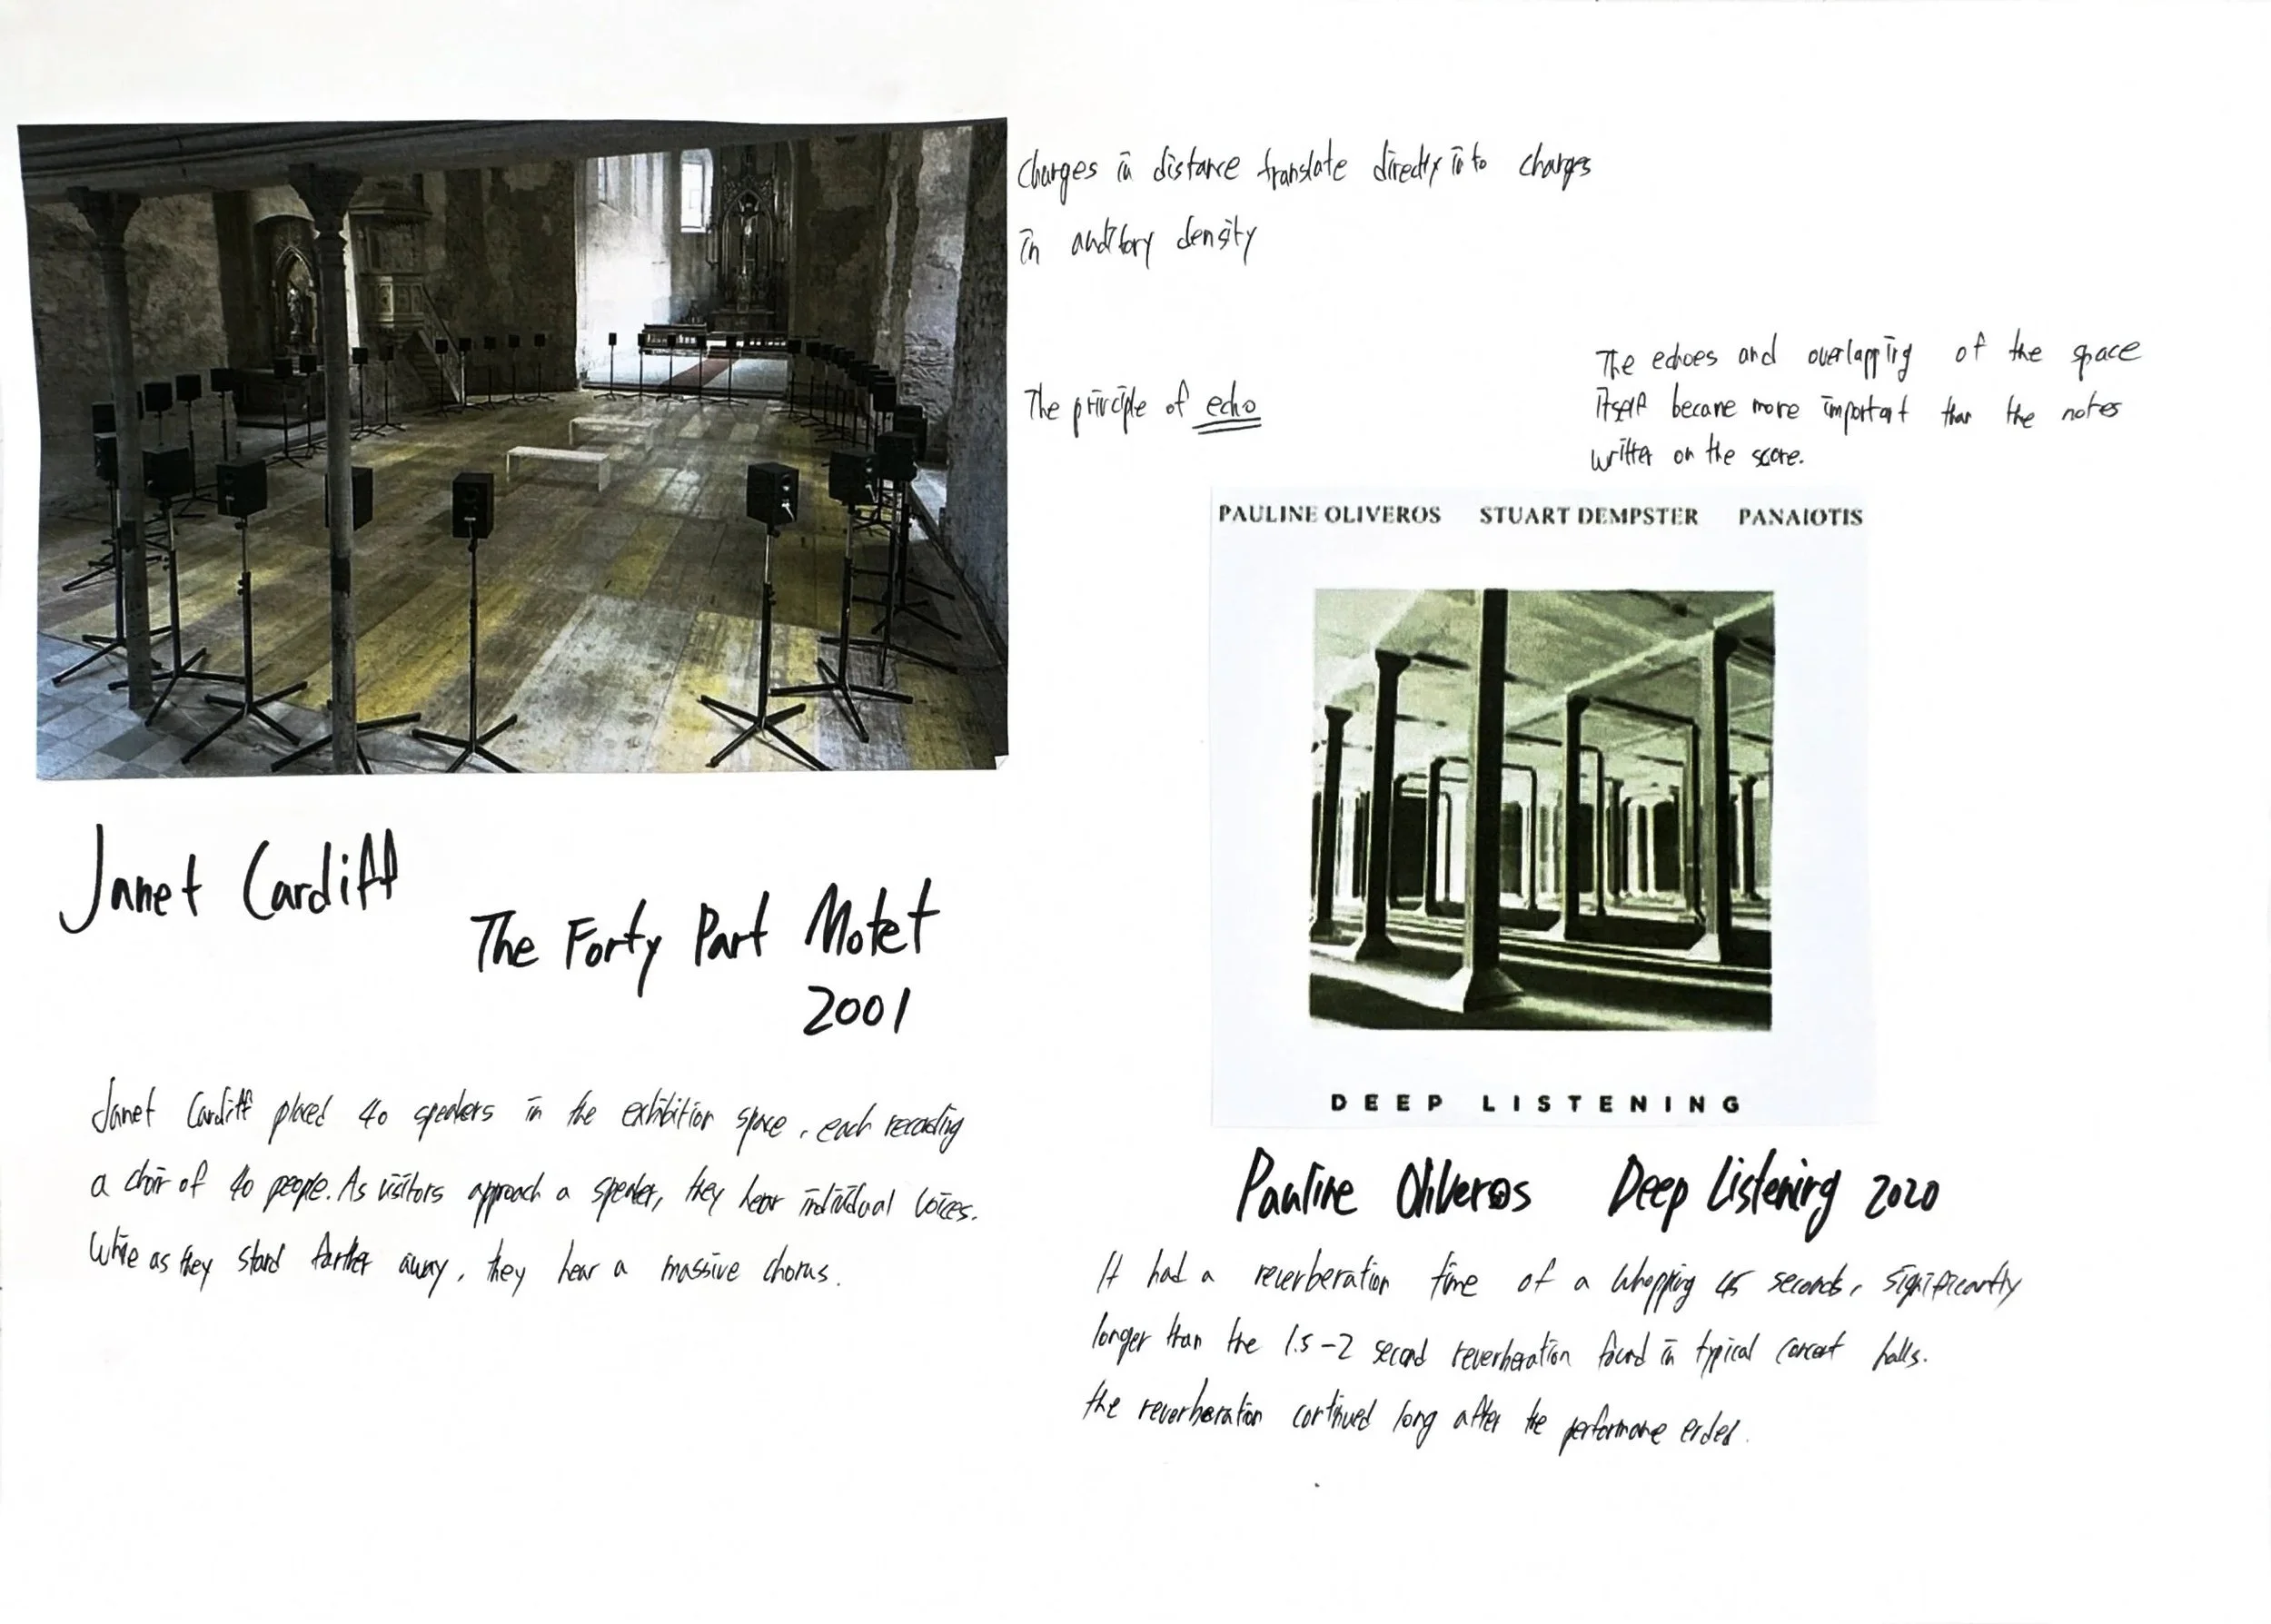 Changes in distance translate directly into changes
in auditory density
The principle of echo
The echoes and overlapping of the space
itself became more important than the notes
written on the score.
PAULINE OLIVEROS STUART DEMPSTER PANAIOTIS
DEEP LISTENING
Janet Cardiff
The Forty Part Motet
2001
Janet Cardiff placed 40 speakers in the exhibition space, each recording
a choir of 40 people. As visitors approach a speaker, they hear individual voices.
While as they stand farther away, they hear a massive chorus.
Pauline Oliveros Deep Listening 2020
It had a reverberation time of a whopping 45 seconds, significantly
longer than the 1.5-2 second reverberation found in typical concert halls.
the reverberation continued long after the performance ended.